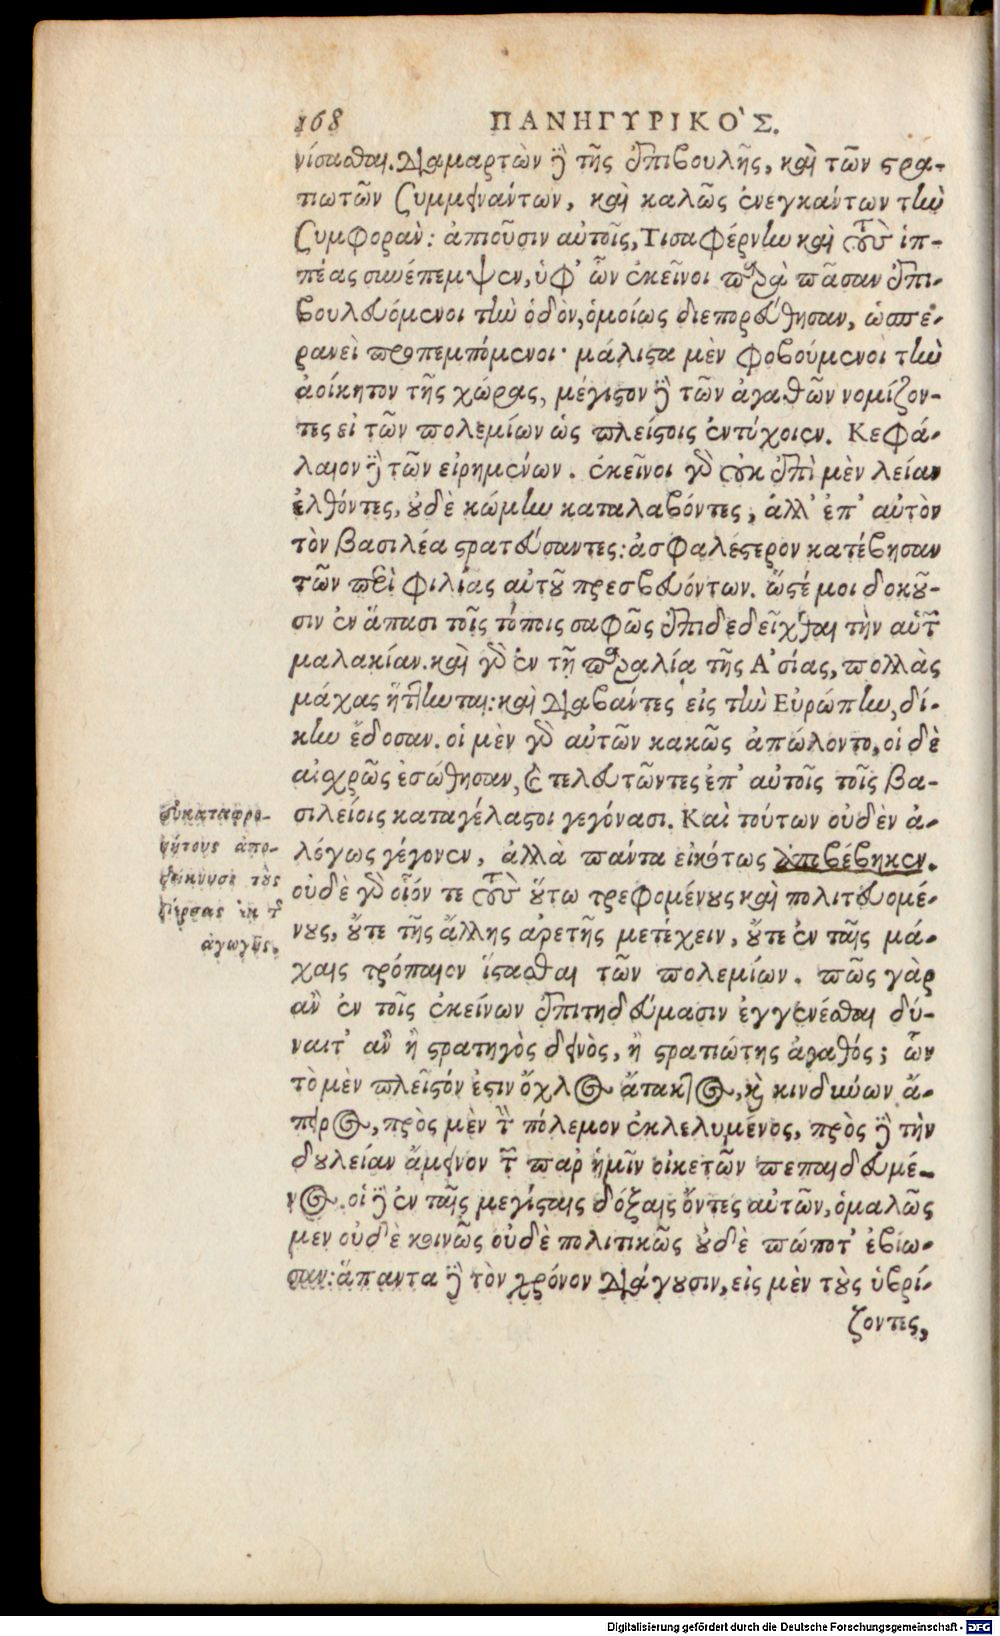 168 ΠΑΝΗΓΥΡΙΚΟ'Σ.
νίσασθαι. διαμαρτὼν δὲ τῆς ἐπιβουλῆς, καὶ τῶν στρα-
τιωτῶν συμμεινάντων, καὶ καλῶς ἐνεγκάντων τὴν
συμφορὰν: ἀπιοῦσιν αὐτοῖς, Τισαφέρνην καὶ τοὺς ἱπ-
πέας συνέπεμψεν, ὑφ' ὧν ἐκεῖνοι παρὰ πᾶσαν ἐπι-
βουλευόμενοι τὴν ὁδὸν, ὁμοίως διεπορεύθησαν, ὡσπε-
ρανεὶ προπεμπόμενοι· μάλιστα μὲν φοβούμενοι τὴν
ἀοίκητον τῆς χώρας, μέγιστον δὲ τῶν ἀγαθῶν νομίζον-
τες εἰ τῶν πολεμίων ὡς πλείστοις ἐντύχοιεν. Κεφά-
λαιον δὲ τῶν εἰρημένων. ἐκεῖνοι γὰρ οὐκ ἐπὶ μὲν λείαν
ἐλθόντες, οὐδὲ κώμην καταλαβόντες, ἀλλ' ἐπ' αὐτὸν
τὸν βασιλέα στρατεύσαντες: ἀσφαλέστερον κατέβησαν
τῶν περὶ φιλίας αὐτοῦ πρεσβευόντων. ὥστέ μοι δοκοῦ-
σιν ἐν ἅπασι τοῖς τόποις σαφῶς ἐπιδεδεῖχθαι τὴν αὑτῶν
μαλακίαν. καὶ γὰρ ἐν τῇ παραλίᾳ τῆς Ἀσίας, πολλὰς
μάχας ἥττηνται: καὶ διαβάντες εἰς τὴν Εὐρώπην, δί-
κην ἔδοσαν. οἱ μὲν γὰρ αὐτῶν κακῶς ἀπώλοντο, οἱ δὲ
αἰσχρῶς ἐσώθησαν, καὶ τελευτῶντες ἐπ' αὐτοῖς τοῖς βα-
σιλείοις καταγέλαστοι γεγόνασι. Καὶ τούτων οὐδὲν ἀ-
λόγως γέγονεν, ἀλλὰ πάντα εἰκότως ἀποβέβηκεν.
οὐδὲ γὰρ οἷόν τε τοὺς οὕτω τρεφομένους καὶ πολιτευομέ-
νους, οὔτε τῆς ἄλλης ἀρετῆς μετέχειν, οὔτε ἐν ταῖς μά-
χαις τρόπαιον ἵστασθαι τῶν πολεμίων. πῶς γὰρ
ἂν ἐν τοῖς ἐκείνων ἐπιτηδεύμασιν ἐγγενέσθαι δύ-
ναιτ' ἂν ἢ στρατηγὸς δεινὸς, ἢ στρατιώτης ἀγαθός; ὧν
τὸ μὲν πλεῖστόν ἐστιν ὄχλος ἄτακτος, καὶ κινδύνων ἄ-
πειρος, πρὸς μὲν τὸν πόλεμον ἐκλελυμένος, πρὸς δὲ τὴν
δουλείαν ἄμεινον τῶν παρ ἡμῖν οἰκετῶν πεπαιδευμέ-
νος. οἱ δὲ ἐν ταῖς μεγίσταις δόξαις ὄντες αὐτῶν, ὁμαλῶς
μεν οὐδὲ κοινῶς οὐδὲ πολιτικῶς οὐδὲ πώποτ' ἐβίω-
σαν: ἅπαντα δὲ τὸν χρόνον διάγουσιν, εἰς μὲν τοὺς ὑβρί-
ζοντες,
εὐκαταφρο-
νήτους ἀπο-
δείκνυσι τοὺς
Πέρσας ἐκ τῆς
ἀγωγῆς.
Digitalisierung gefördert durch die Deutsche Forschungsgemeinschaft - DFG